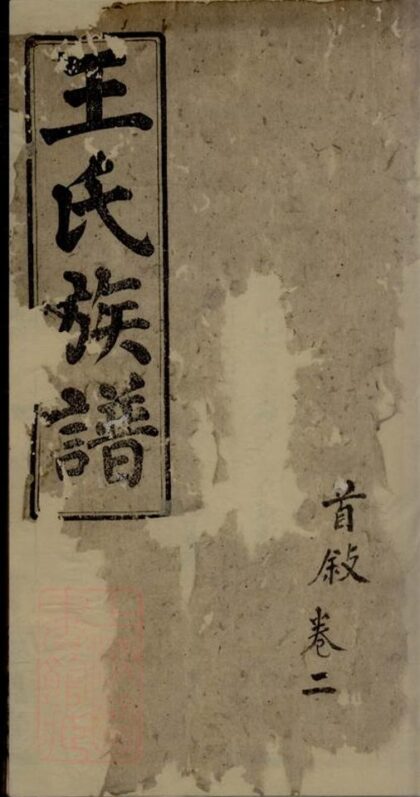 王氏族譜
首敍 卷二